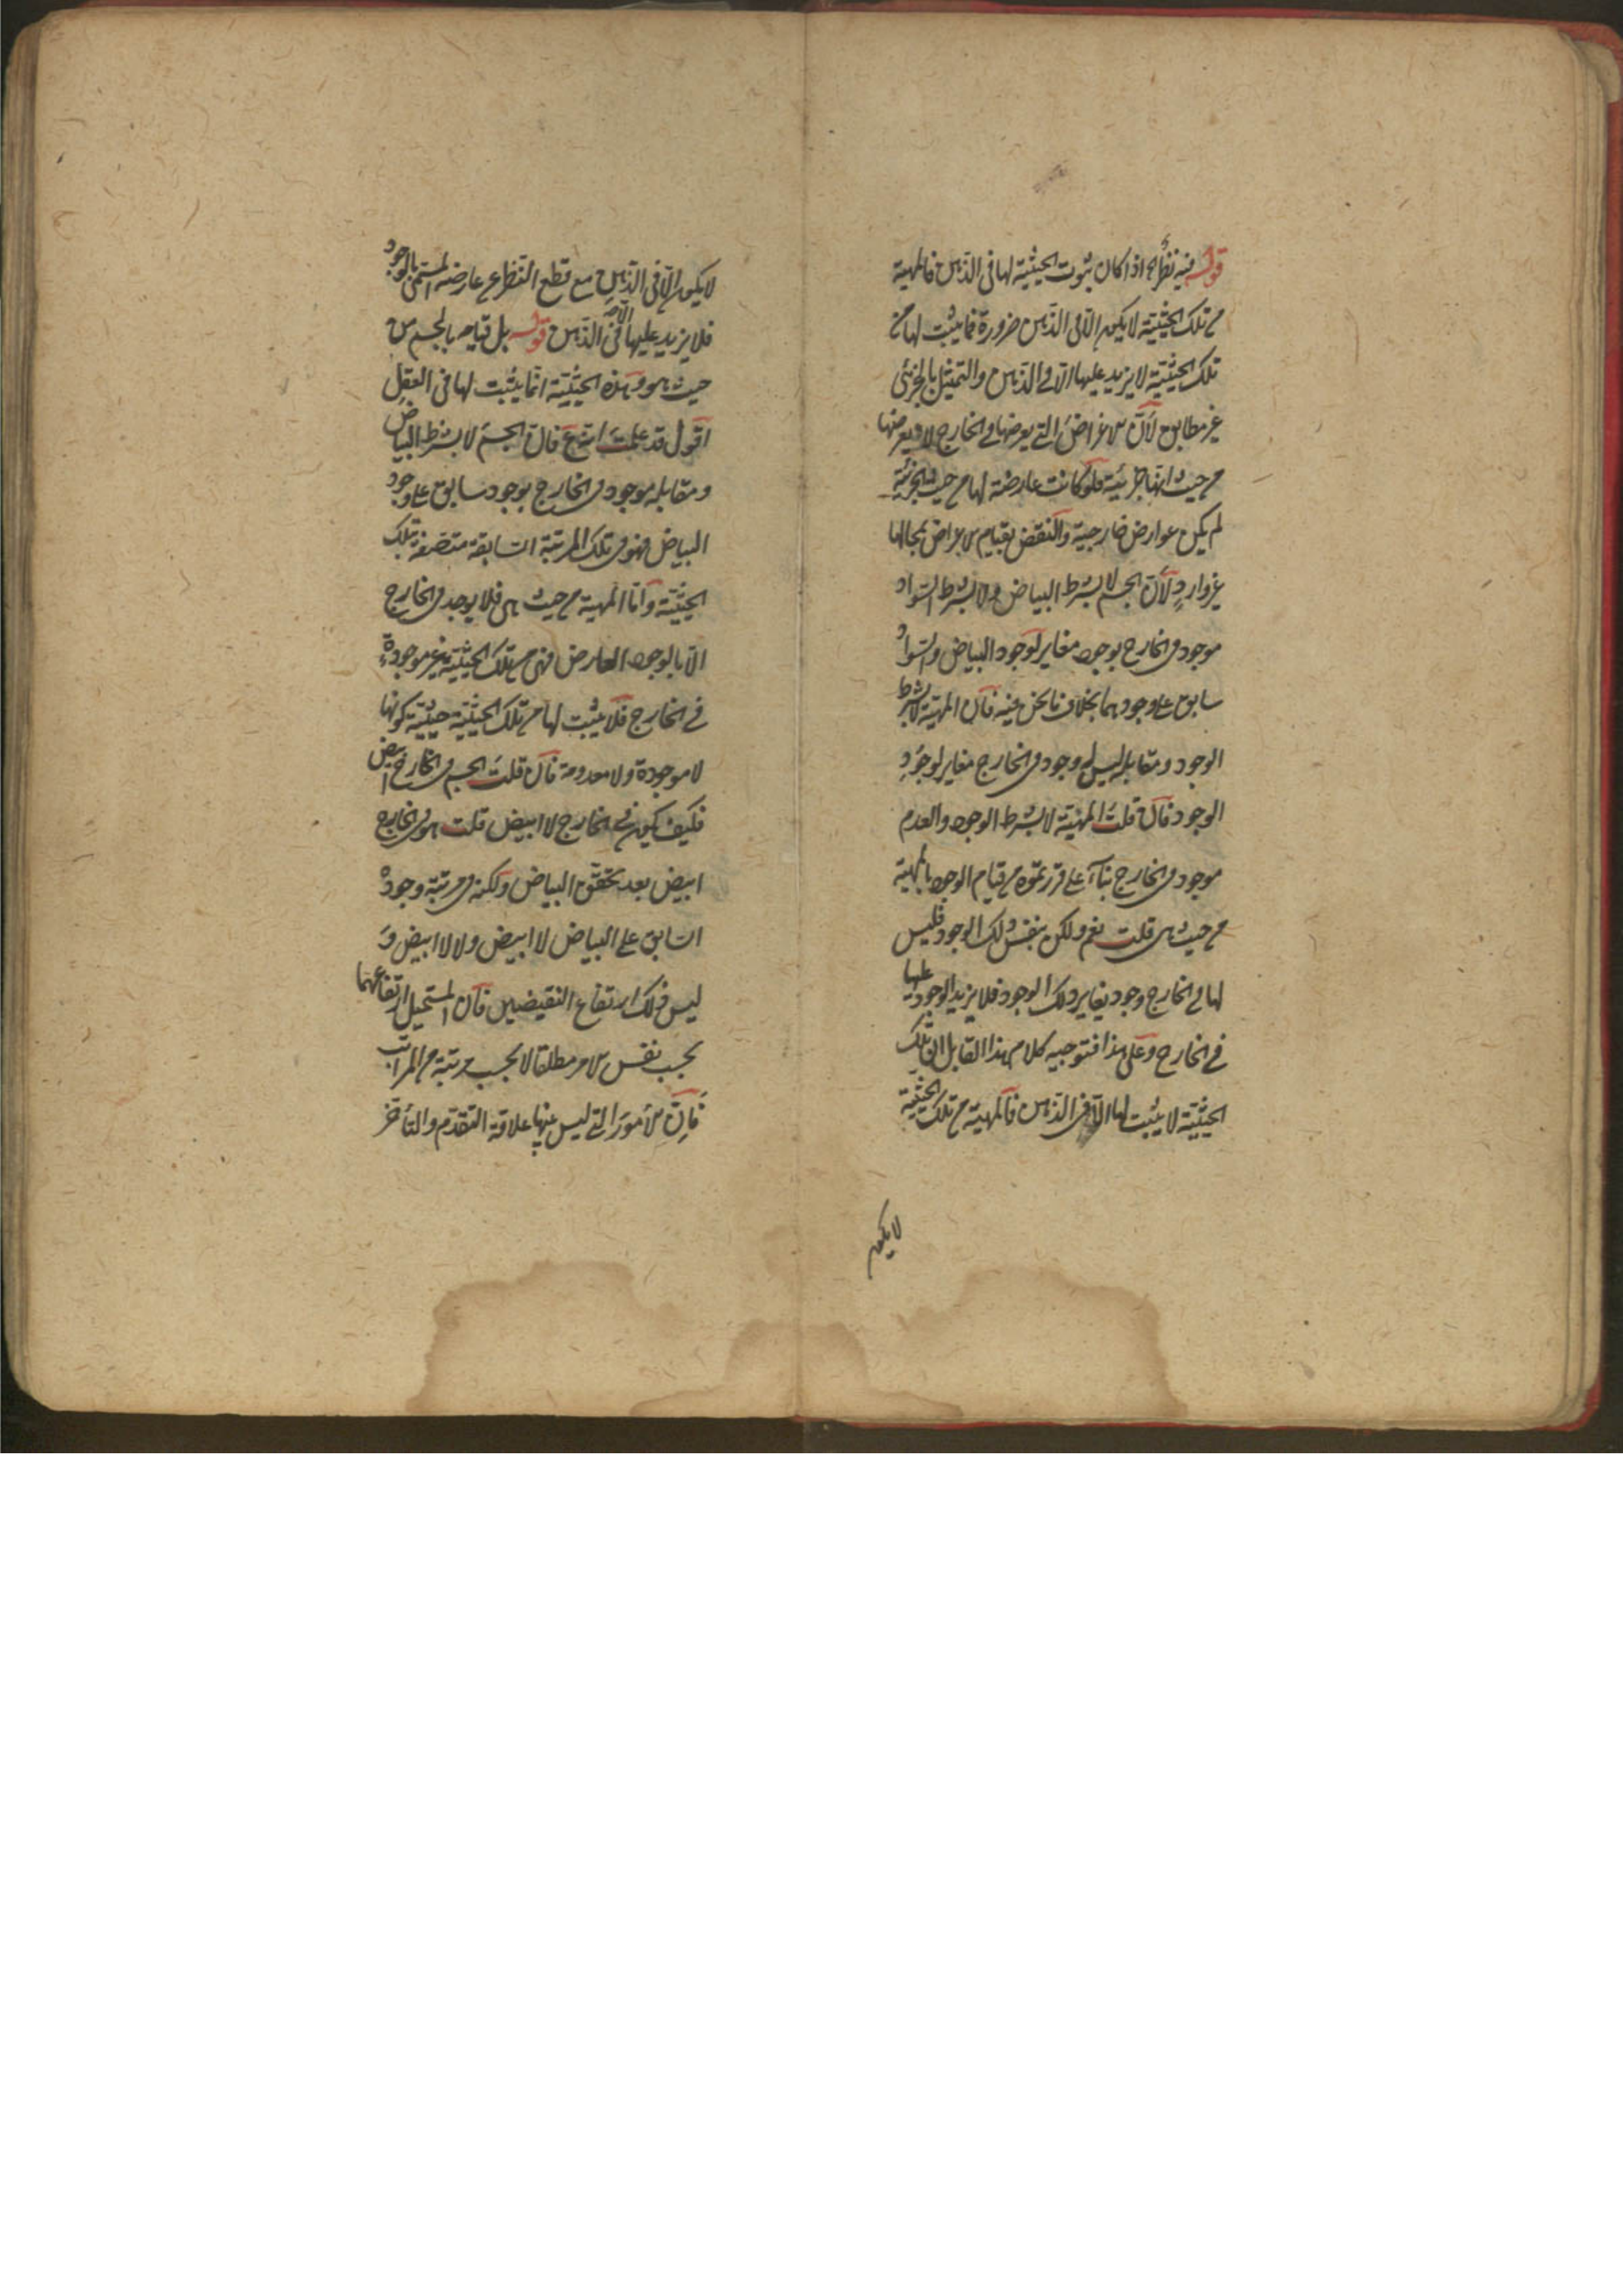 قوله فيه نظر اه اذا كان ثبوت الحيثية لها في الذهن فالمهية
من تلك الحيثية لا يكون الا في الذهن ضرورة فما يثبت لها من
تلك الحيثية لا يزيد عليها الا في الذهن والتمثيل بالجزئي
غير مطابق لان الاعراض التي يعرضها في الخارج لا يعرضها
من حيث انها جزئية فلو كانت عارضة لها من حيث الجزئية
لم يكن عوارض خارجية والنقض بقيام الاعراض بمحالها
غير وارد لان الجسم لا بشرط البياض ولا بشرط السواد
موجود في الخارج بوجود مغاير لوجود البياض والسواد
سابق على وجودهما بخلاف ما نحن فيه فان المهية لا بشرط
الوجود ومقابله ليس له وجود في الخارج مغاير لوجود
الوجود فان قلت المهية لا بشرط الوجود والعدم
موجود في الخارج بناء على ما قررتموه من قيام الوجود بالمهية
من حيث هي قلت نعم ولكن بنفس ذلك الوجود فليس
لها في الخارج وجود يغاير ذلك الوجود فلا يزيد الوجود عليها
في الخارج وعلى هذا فتوجيه كلام هذا القايل ان تلك
الحيثية لا يثبت لها الا في الذهن فالمهية من تلك الحيثية
لا يكون
لا يكون الا في الذهن مع قطع النظر عن عارضه المسمى بالوجود
فلا يزيد عليها الا في الذهن قوله بل قيامه بالجسم من
حيث هو وهذه الحيثية انما يثبت لها في العقل
اقول قد علمت اندفاعه فان الجسم لا بشرط البياض
ومقابله موجود في الخارج بوجود سابق على وجود
البياض فهو في تلك المرتبة السابقة متصفة بتلك
الحيثية واما المهية من حيث هي فلا يوجد في الخارج
الا بالوجود العارض فهي من تلك الحيثية غير موجودة
في الخارج فلا يثبت لها من تلك الحيثية حيثية كونها
لا موجودة ولا معدومة فان قلت الجسم في الخارج ابيض
فكيف يكون في الخارج لا ابيض قلت هو في الخارج
ابيض بعد تحقق البياض ولكنه في مرتبة وجوده
السابق على البياض لا ابيض ولا لا ابيض و
ليس ذلك ارتفاع النقيضين فان المستحيل ارتفاعهما
بحسب نفس الامر مطلقا لا بحسب مرتبة من المراتب
فان الامور التي ليس بينها علاقة التقدم والتأخر